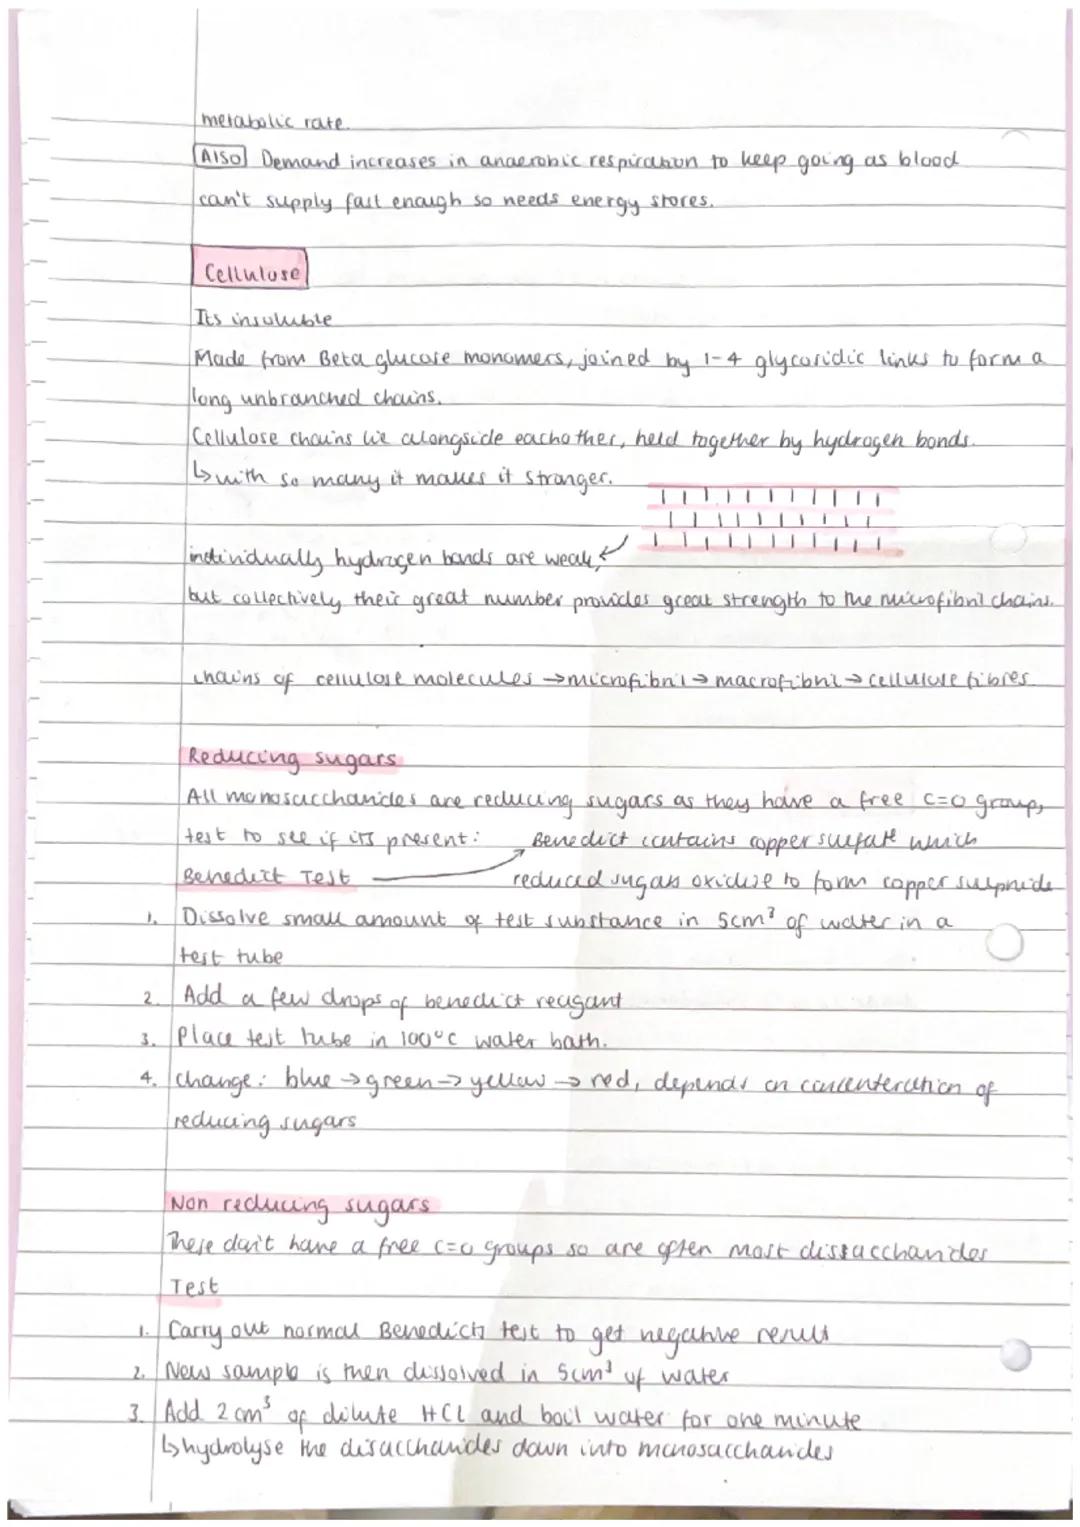 metabolic rate.
Also Demand increases in anaerobic respiration to keep going as blood
can't supply fast enough so needs energy stores.
Cellulose
Its insoluble
Made from Beta glucose monomers, joined by 1-4 glycosidic links to form a
long unbranched chains.
Cellulose chains lie alongside eachother, held together by hydrogen bonds.
↳ with so many it makes it stronger.
individually hydrogen bonds are weak,
but collectively their great number provides great strength to the microfibril chains.
chains of cellulose molecules → microfibril → macrofibril → cellulose fibres
Reducing sugars
All monosaccharides are reducing sugars as they have a free C=O group,
test to see if its present:
Benedict contains copper sulfate which
Benedict Test
reduced sugars oxidise to form copper sulphide
1. Dissolve small amount of test substance in 5cm³ of water in a
test tube
2. Add a few drops of benedict reagant
3. Place test tube in 100°C water bath.
4. Change: blue → green → yellow → red, depends on concenteration of
reducing sugars
Non reducing sugars
These don't have a free C=O groups so are often most dissacchandes
Test
1. Carry out normal Benedicts test to get negative result
2. New sample is then dissolved in 5cm³ of water
3. Add 2cm³ of dilute HCl and boil water for one minute
↳ hydrolyse the disaccharides down into monosaccharides